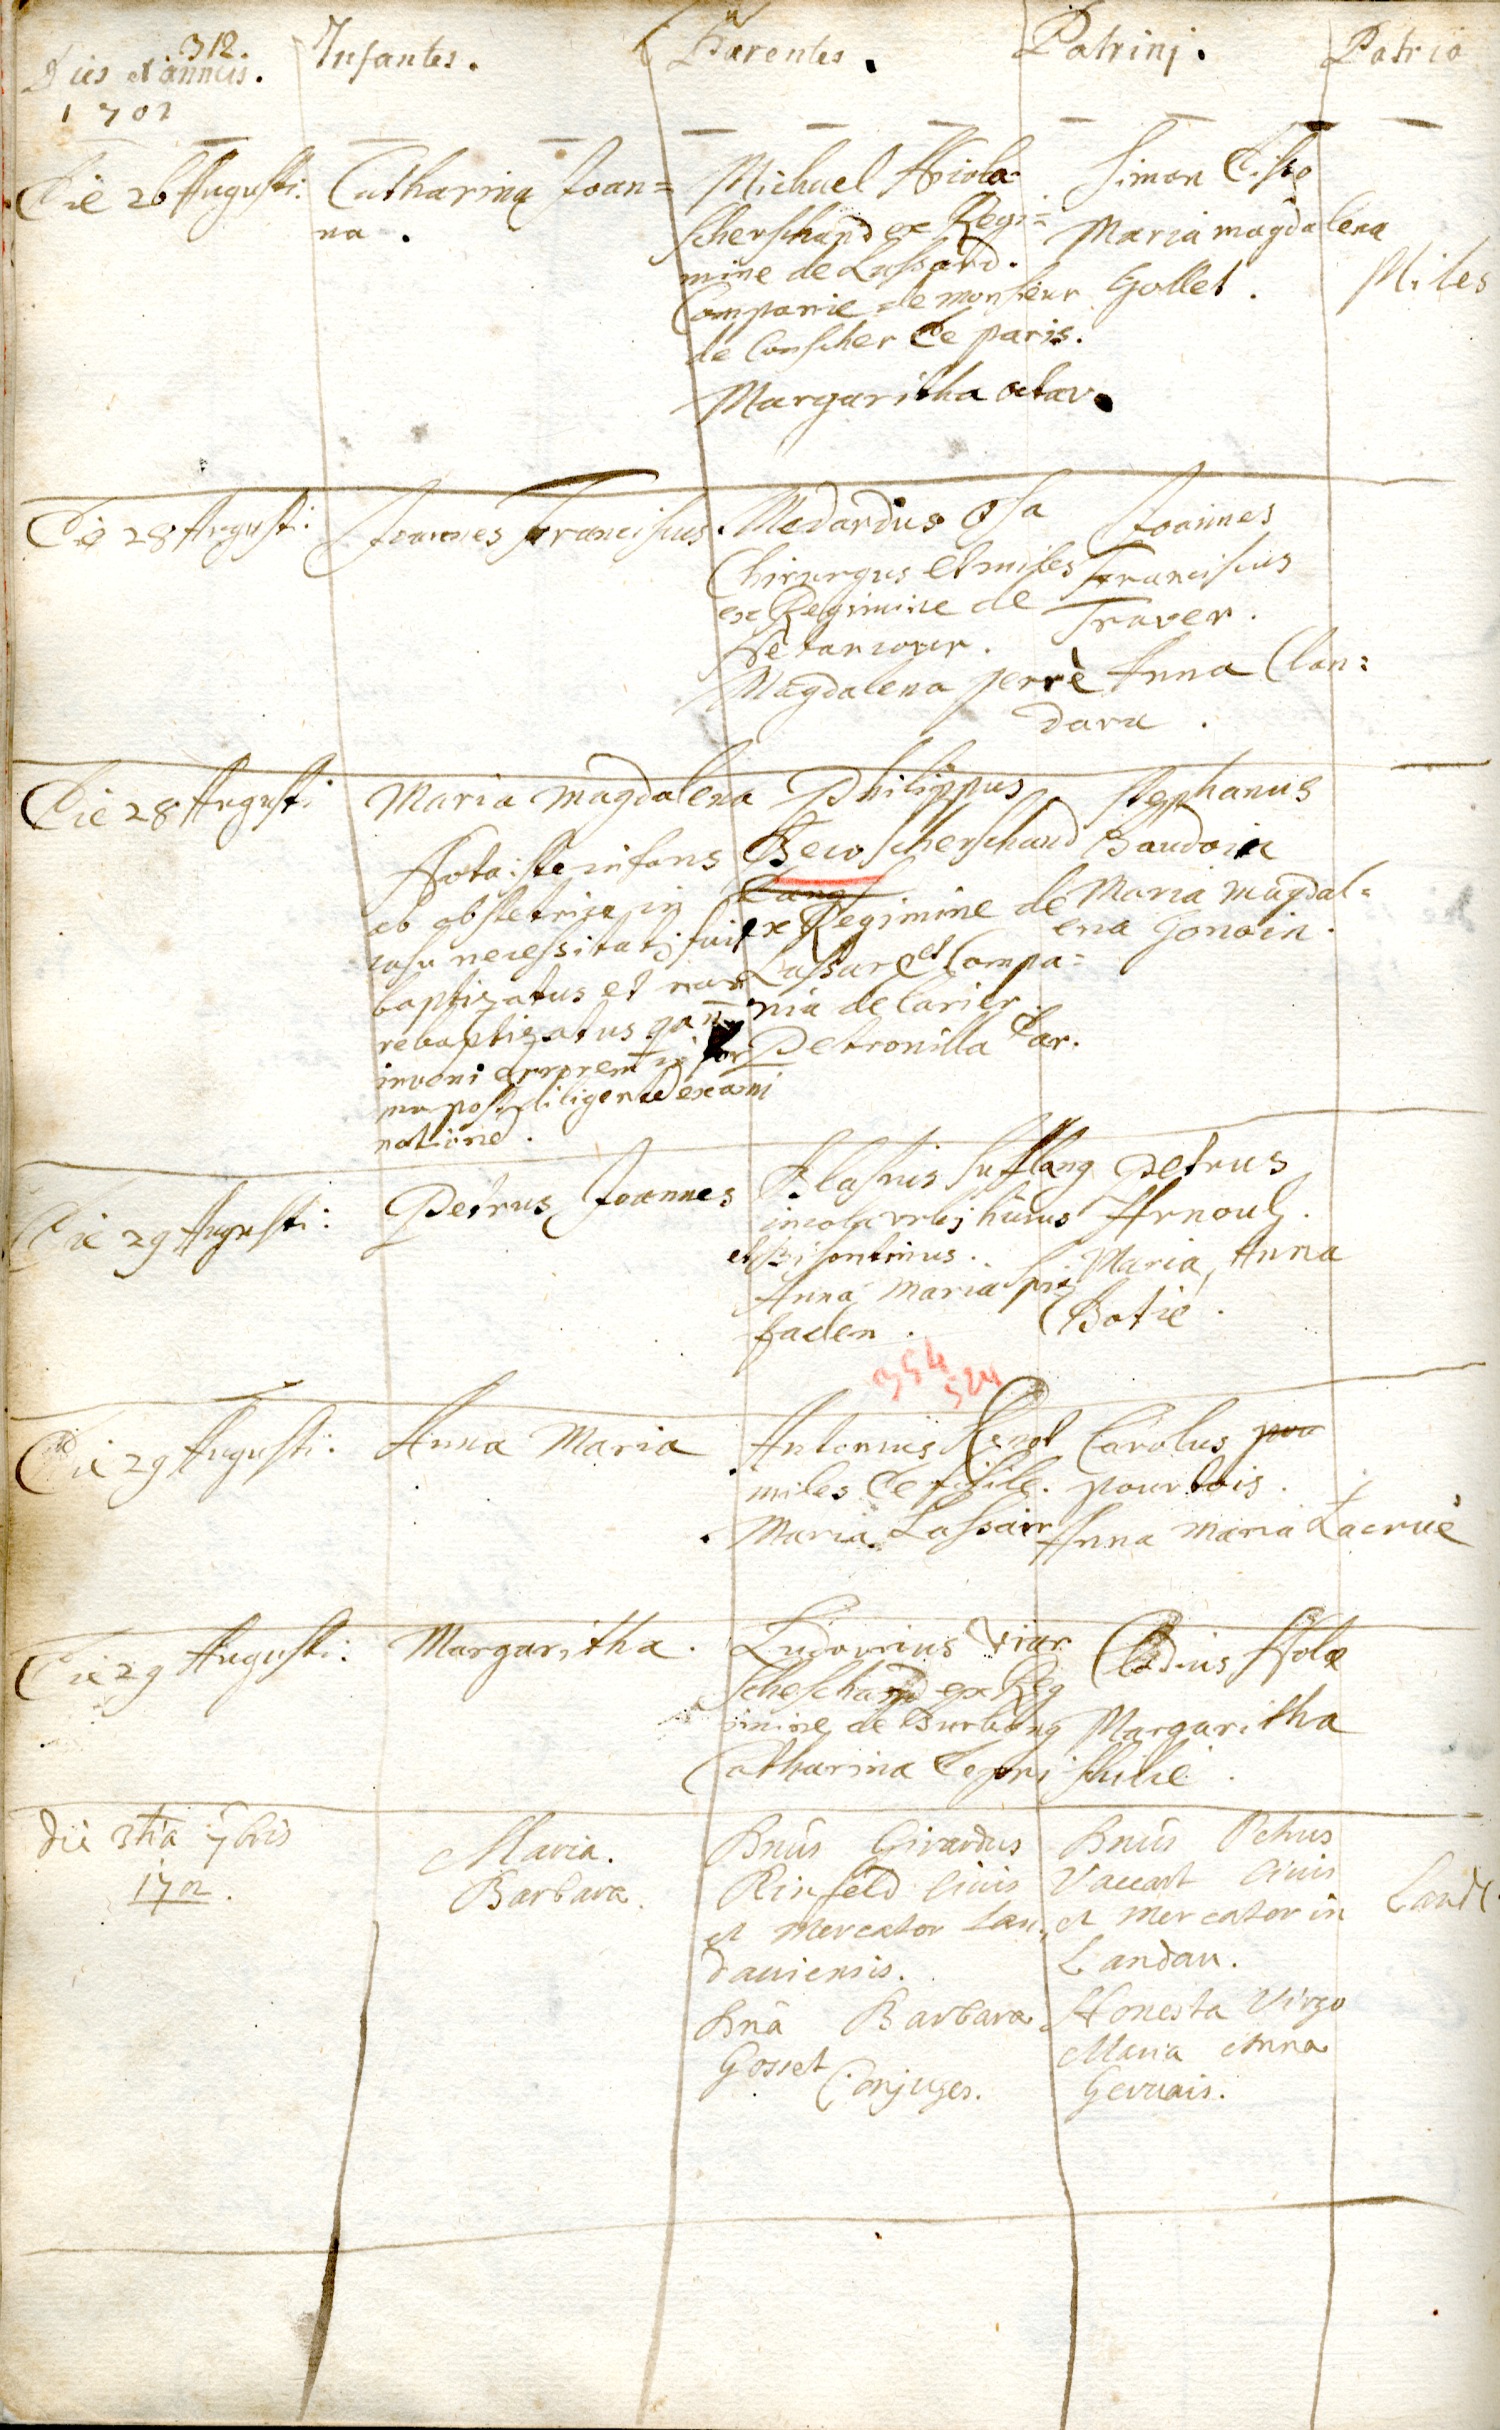 312.
Dies et annus. Infantes. Parentes. Patrinj. Patria
1702
Die 26 Augusti: Catharina Joan=
na.
Michael
scherschand ex Regi=
mine de Lassard.
Companie de monsieur
de Conscher de paris.
Margaritha octav.
Simon Disto
Maria magdalena
Gollet.
Miles
Die 28 Augusti: Joannes Franciscus.
Medardus Osa
Chirurgus et miles
ex Regimine de
Betancour.
Magdalena perrè
Joannes
Franciscus
Traver.
Anna Clan:
dara.
Die 28 Augusti
Maria Magdalena
Nota: iste infans
ab obstetrice in
casu necessitatis fuit
baptizatus et non
rebaptizatus qa
inveni in for
ma post diligente exami
natione.
Philippus
Beco scherschand
ex Regimine de
Lassare et Compa=
nia de Carier.
Petronilla Car.
Stephanus
Baudoin
Maria Magdal=
ena Gonoin.
Die 29 Augusti:
Petrus Joannes
Blasius Sufflang
incola urbis huius
et Bisontinus.
Anna Maria
faden.
Petrus
Arnoul.
Maria Anna
Botie.
354
524
Die 29 Augusti:
Anna Maria
Antonius
miles de
Maria Lassair
Carolus pou
pourtois.
Anna Maria Lacruè
Die 29 Augusti:
Margaritha.
Ludovicus Viar
scheschand ex Reg
imine de Burbong
Catharina Depri
Clodius Nole
Margaritha
Die 3tia 7bris
1702.
Maria.
Barbara.
Dnus Girardus
Rinfeld Civis
et Mercator Lan=
daviensis.
Dna Barbara
Gosset Conjuges.
Dnus Petrus
Vaccart Civis
et Mercator in
Landau.
Honesta Virgo
Maria Anna
Gervais.